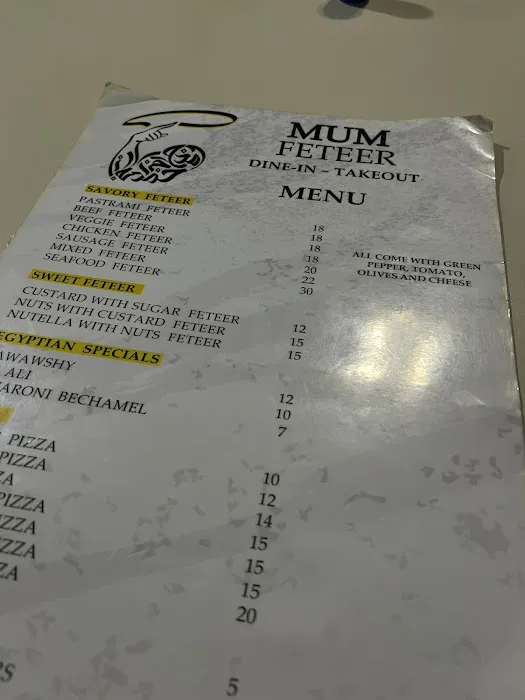 MUM
FETEER
DINE-IN ~ TAKEOUT
MENU
SAVORY FETEER
PASTRAMI FETEER 18
BEEF FETEER 18
VEGGIE FETEER 18
CHICKEN FETEER 18
SAUSAGE FETEER 20
MIXED FETEER 22
SEAFOOD FETEER 30
ALL COME WITH GREEN
PEPPER, TOMATO,
OLIVES AND CHEESE
SWEET FETEER
CUSTARD WITH SUGAR FETEER 12
NUTS WITH CUSTARD FETEER 15
NUTELLA WITH NUTS FETEER 15
EGYPTIAN SPECIALS
AWAWSHY 12
ALI 10
ARONI BECHAMEL 7
PIZZA 10
PIZZA 12
ZA 14
PIZZA 15
ZZA 15
ZZA 15
ZA 20
RS 5